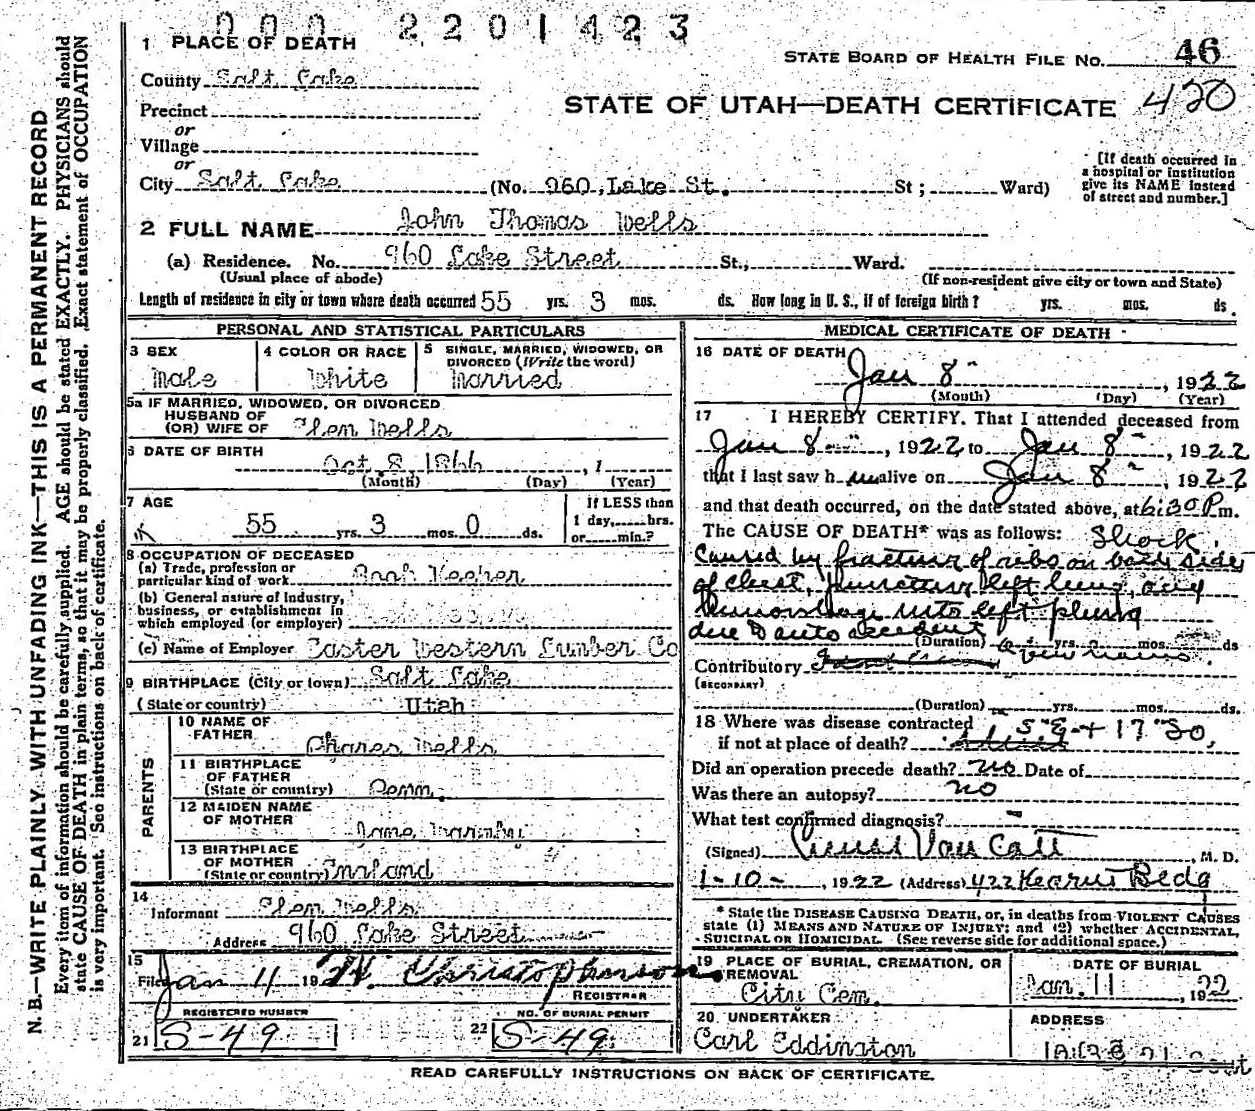 000 2201423
1 PLACE OF DEATH
STATE BOARD OF HEALTH FILE NO. 46
County Salt Lake
STATE OF UTAH—DEATH CERTIFICATE 420
Precinct
or
Village
or
City Salt Lake (No. 960 Lake St. St; Ward)
[If death occurred in
a hospital or institution
give its NAME instead
of street and number.]
2 FULL NAME John Thomas Wells
(a) Residence. No. 960 Lake Street St., Ward.
(Usual place of abode) (If non-resident give city or town and State)
Length of residence in city or town where death occurred 55 yrs. 3 mos. ds. How long in U. S., if of foreign birth? yrs. mos. ds.
PERSONAL AND STATISTICAL PARTICULARS
3 SEX
Male
4 COLOR OR RACE
White
5 SINGLE, MARRIED, WIDOWED, OR
DIVORCED (Write the word)
Married
5a IF MARRIED, WIDOWED, OR DIVORCED
HUSBAND OF
(OR) WIFE OF Ellen Wells
6 DATE OF BIRTH
Oct 8, 1866 , 1
(Month) (Day) (Year)
7 AGE
55 yrs. 3 mos. 0 ds.
If LESS than
1 day, hrs.
or min.?
8 OCCUPATION OF DECEASED
(a) Trade, profession or
particular kind of work Book Keeper
(b) General nature of industry,
business, or establishment in
which employed (or employer)
(c) Name of Employer Western Lumber Co
9 BIRTHPLACE (City or town) Salt Lake
(State or country) Utah
PARENTS
10 NAME OF
FATHER Chares Wells
11 BIRTHPLACE
OF FATHER
(State or country) Penn.
12 MAIDEN NAME
OF MOTHER Jane
13 BIRTHPLACE
OF MOTHER
(State or country) England
14
Informant Ellen Wells
Address 960 Lake Street
15
Filed Jan 11 192 Christopherson
REGISTRAR
REGISTERED NUMBER
21 S-49
NO. OF BURIAL PERMIT
22 S-49
MEDICAL CERTIFICATE OF DEATH
16 DATE OF DEATH
Jan 8 , 1922
(Month) (Day) (Year)
17 I HEREBY CERTIFY. That I attended deceased from
Jan 8 , 1922 to Jan 8 , 1922
that I last saw h im alive on Jan 8 1922
and that death occurred, on the date stated above, at 6:30 P m.
The CAUSE OF DEATH* was as follows: Shock
caused by fracture of ribs on both sides
of chest, puncturing left lung, and
hemorrhage into left pleura
due to auto accident
(Duration) yrs. mos. ds
Contributory
(SECONDARY)
(Duration) yrs. mos. ds.
18 Where was disease contracted
if not at place of death? 5 E + 17 So.
Did an operation precede death? No Date of
Was there an autopsy? no
What test confirmed diagnosis?
(Signed) Van Cott , M. D.
1-10- , 1922 (Address) 422 Kearns Bldg
* State the DISEASE CAUSING DEATH, or, in deaths from VIOLENT CAUSES
state (1) MEANS AND NATURE OF INJURY; and (2) whether ACCIDENTAL,
SUICIDAL OR HOMICIDAL. (See reverse side for additional space.)
19 PLACE OF BURIAL, CREMATION, OR
REMOVAL
City Cem.
DATE OF BURIAL
Jan. 11 , 1922
20 UNDERTAKER
Carl Eddington
ADDRESS
READ CAREFULLY INSTRUCTIONS ON BACK OF CERTIFICATE.
N. B.—WRITE PLAINLY WITH UNFADING INK—THIS IS A PERMANENT RECORD
Every item of information should be carefully supplied. AGE should be stated EXACTLY. PHYSICIANS should
state CAUSE OF DEATH in plain terms, so that it may be properly classified. Exact statement of OCCUPATION
is very important. See instructions on back of certificate.